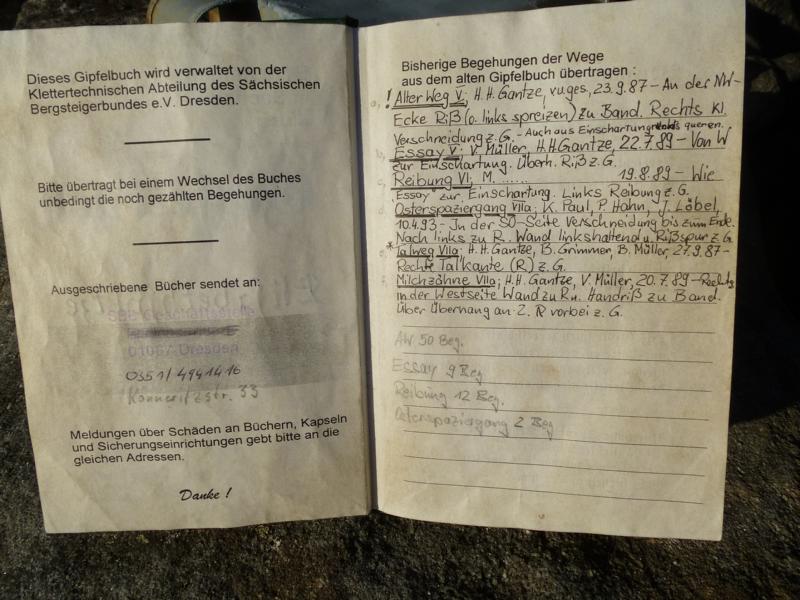 Dieses Gipfelbuch wird verwaltet von der
Klettertechnischen Abteilung des Sächsischen
Bergsteigerbundes e.V. Dresden.
Bitte übertragt bei einem Wechsel des Buches
unbedingt die noch gezählten Begehungen.
Ausgeschriebene Bücher sendet an:
SBB Geschäftsstelle
Dresden
0351/4941416
33
Meldungen über Schäden an Büchern, Kapseln
und Sicherungseinrichtungen gebt bitte an die
gleichen Adressen.
Danke !
Bisherige Begehungen der Wege
aus dem alten Gipfelbuch übertragen :
! Alter Weg V; H.H. Gantze, vu.ges, 23.9.87 - An der NW-
Ecke Riß (o. links spreizen) zu Band. Rechts kl.
Verschneidung z.G. - Auch aus Einschartung queren.
Essay V; V. Müller, H.H. Gantze, 22.7.89 - Von W
zur Einschartung. Überh. Riß z.G.
Reibung VI; M. ....... 19.8.89 - Wie
"Essay" zur Einschartung. Links Reibung z.G.
Osterspaziergang VIIa; K. Paul, P. Hahn, J. Löbel,
10.4.93 - In der SO-Seite Verschneidung bis zum Ende.
Nach links zu R. Wand linkshaltend u. Rißspur z.G.
* Talweg VIIa; H.H. Gantze, B. Grimmer, B. Müller, 27.9.87 -
Rechte Talkante (R) z.G.
Milchzähne VIIa; H.H. Gantze, V. Müller, 20.7.89 - Rechts
in der Westseite Wand zu R u. Handriß zu Band.
Über Überhang an 2. R vorbei z.G.
AW 50 Beg.
Essay 9 Beg
Reibung 12 Beg.
Osterspaziergang 2 Beg